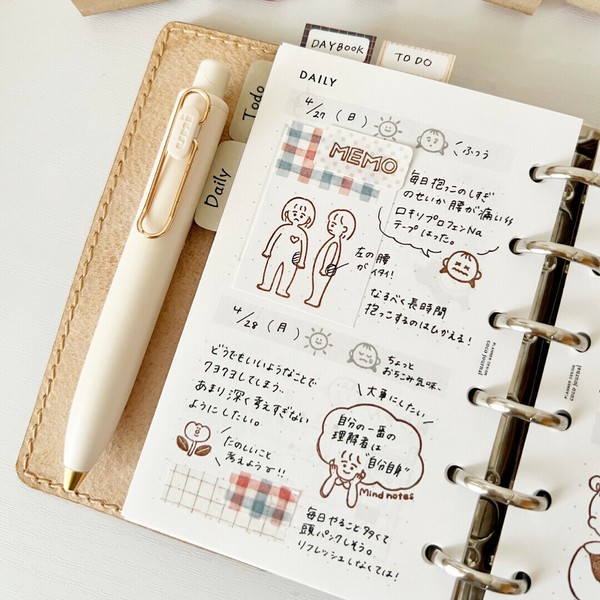 DAYBOOK
TO DO
Todo
Daily
uni
DAILY
4/27 (日)
ふつう
MEMO
毎日抱っこのしすぎ
のせいか 腰が痛い
ロキソプロフェンNa
テープはった。
左の腰
がイタイ!
なるべく長時間
抱っこするのはひかえる!
4/28 (月)
ちょっと
おちこみ気味、
どうでもいいようなことで
クヨクヨしてしまう..
あまり深く考えすぎない
ようにしたい。
たのしいこと
考えようヮ!!
大事にしたい
自分の一番の
理解者は
"自分自身"
Mind notes
毎日やること多くて
頭パンクしそう。
リフレッシュしなくては!
coco journal
coco journal